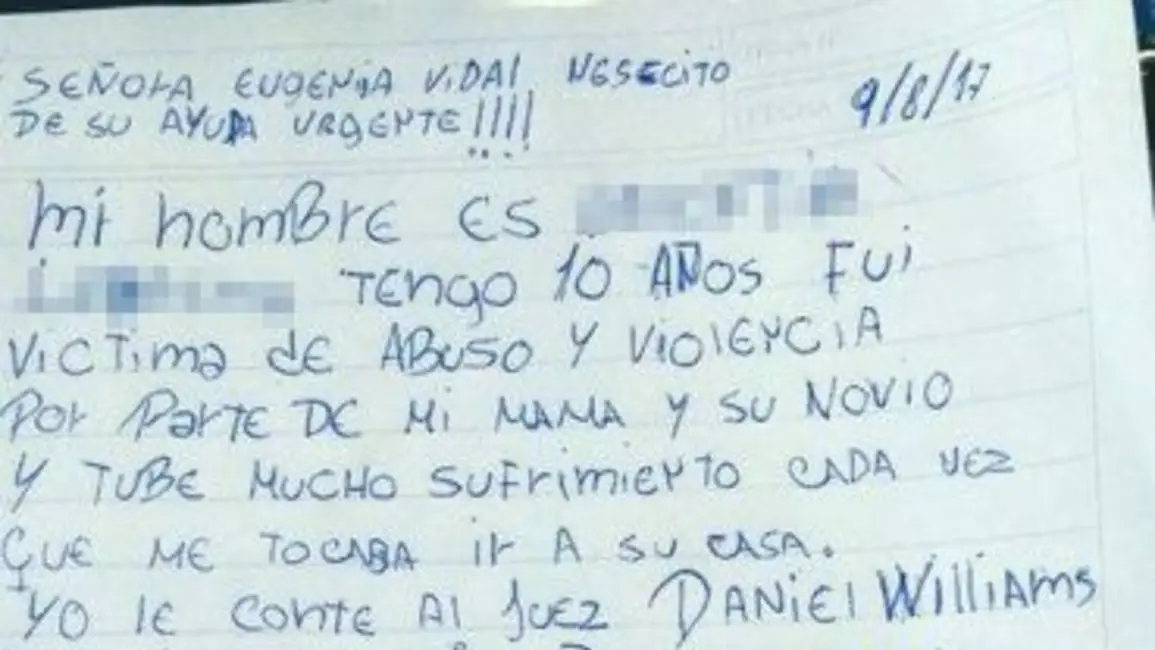 SEÑORA EUGENIA VIDAL NESECITO
DE SU AYUDA URGENTE!!!!
9/8/17
mi nomBRE ES
TENgo 10 AÑOS FUi
VICTima dE ABUSO Y VIOLENCIA
POr ParTE DE Mi MAMA Y SU NOVIO
Y TUBE MUCHO SUFrimiENTO CADA VEZ
QUE ME TOCABA ir A SU CASA.
YO lE CONTE Al JUEZ DANiEl Williams